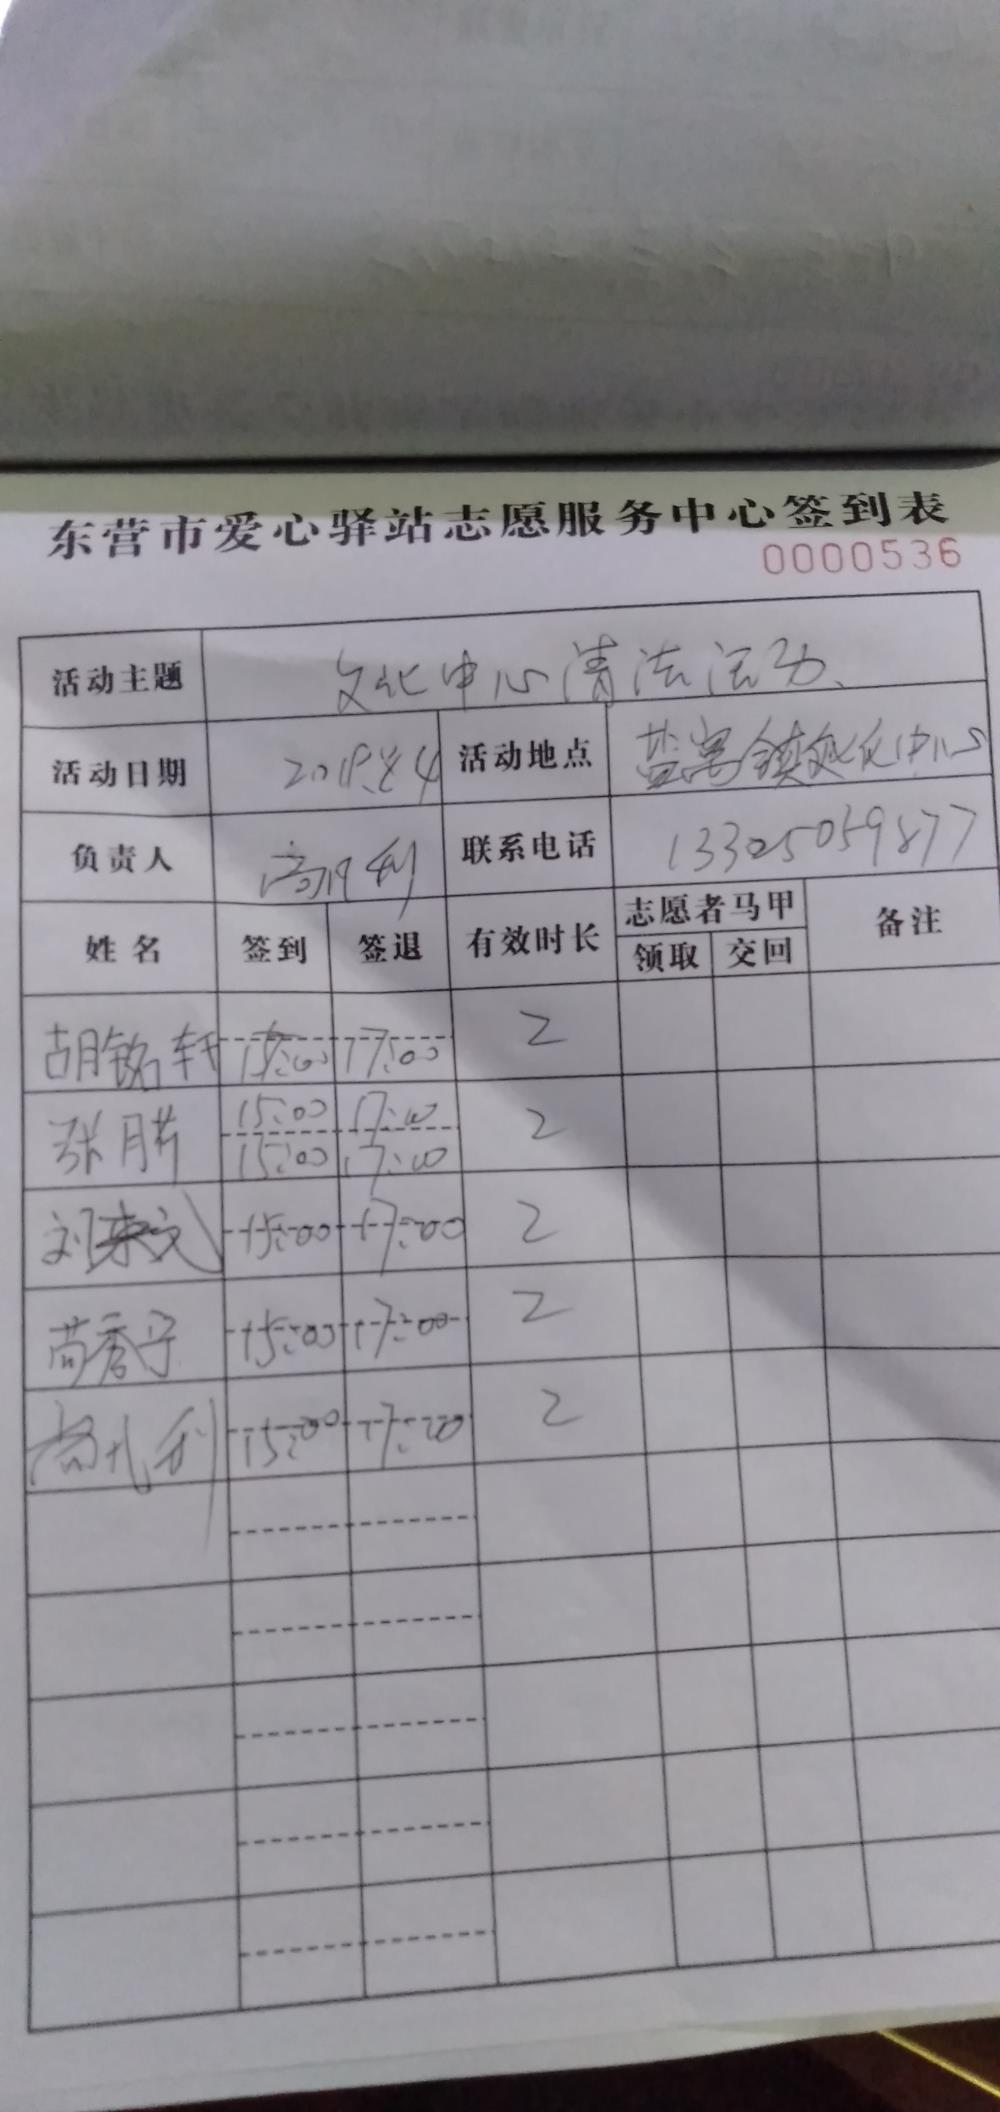 东营市爱心驿站志愿服务中心签到表
0000536
活动主题 文化中心清洁活动
活动日期 2019.8.4 活动地点 盐窝镇文化中心
负责人 联系电话 13325059877
姓名 签到 签退 有效时长 志愿者马甲 备注
领取 交回
胡铭轩 15:00 17:00 2
15:00 17:00
张月 15:00 17:00 2
刘来文 15:00 17:00 2
苗秀 15:00 17:00 2
利 15:00 17:00 2